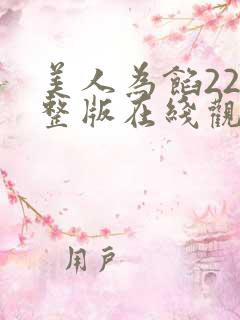 美人為餡22
整版在綫觀
用戶